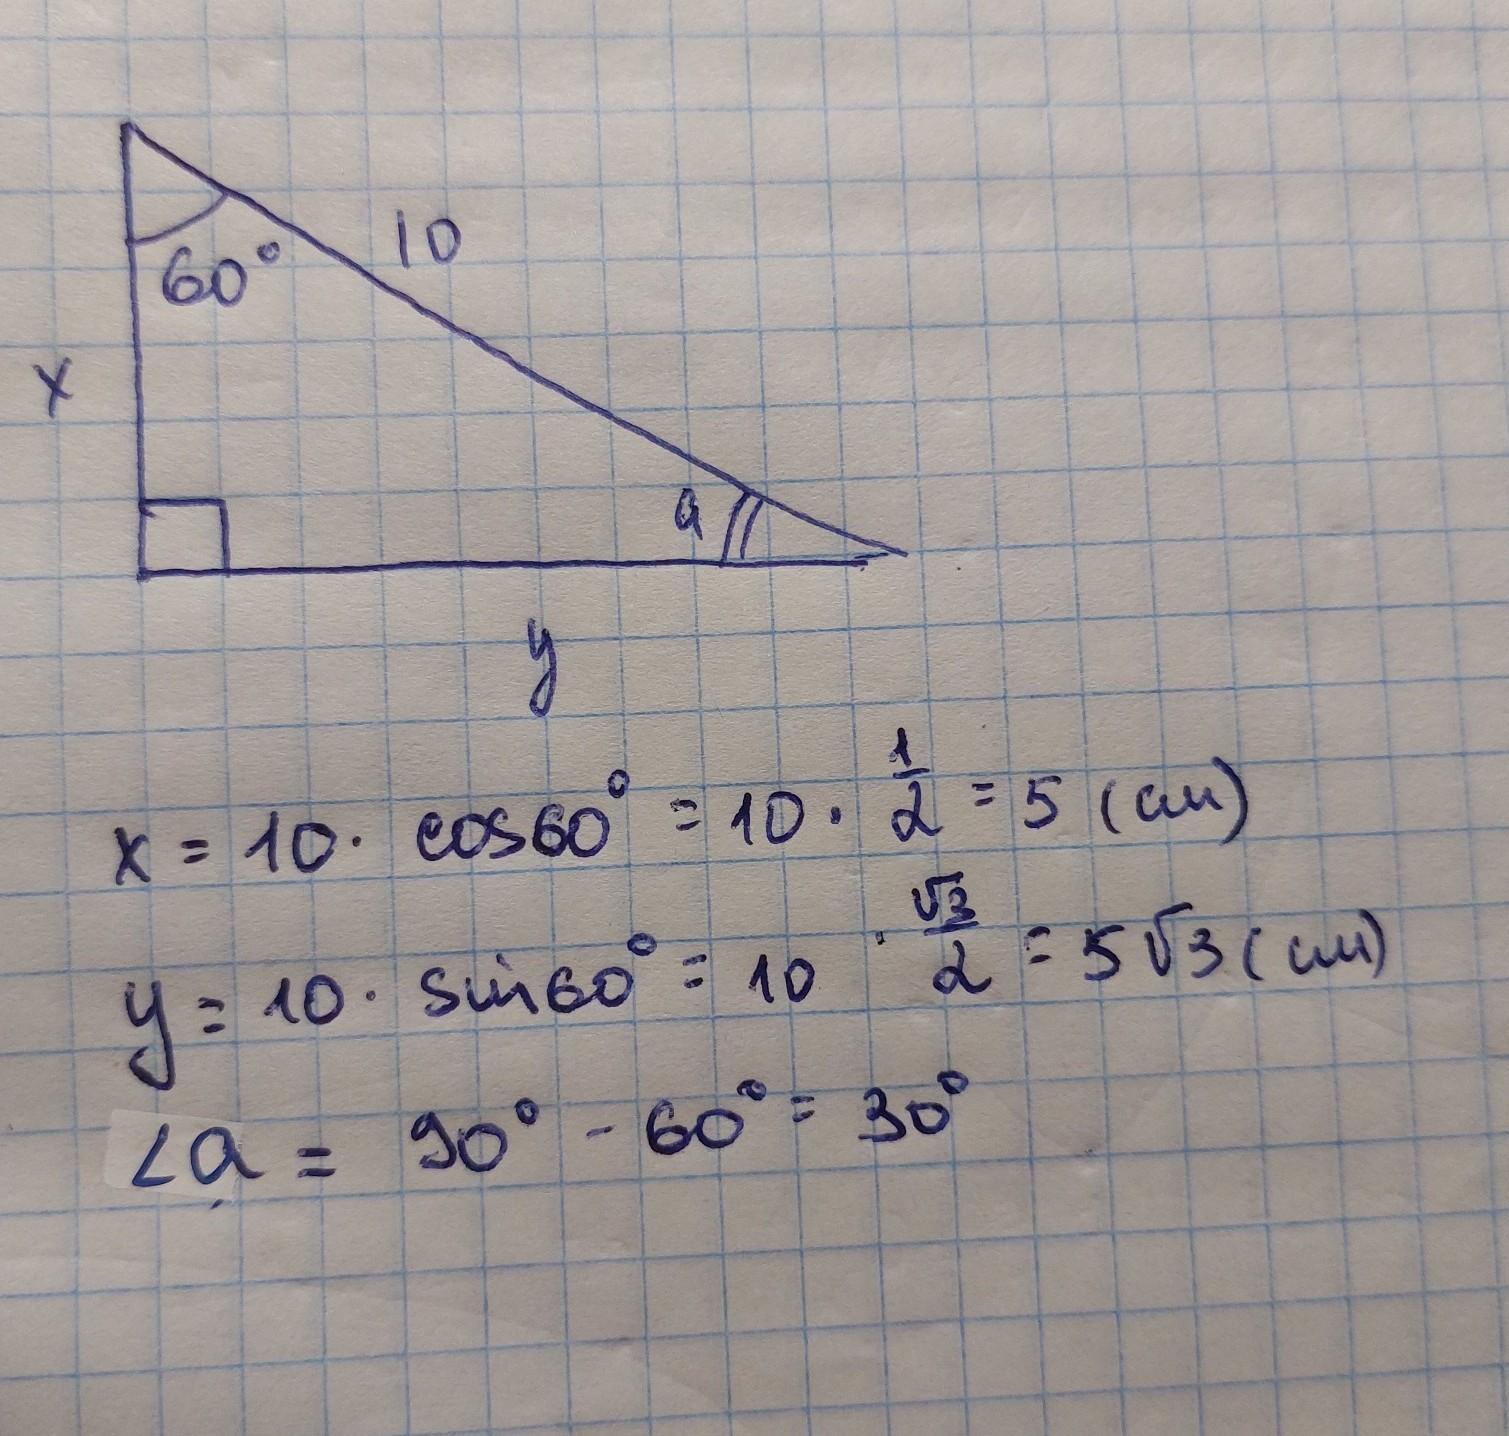 60°
10
x
a
y
x = 10 · cos60° = 10 · 1/2 = 5 (см)
y = 10 · sin60° = 10 · √3/2 = 5√3 (см)
∠a = 90° - 60° = 30°